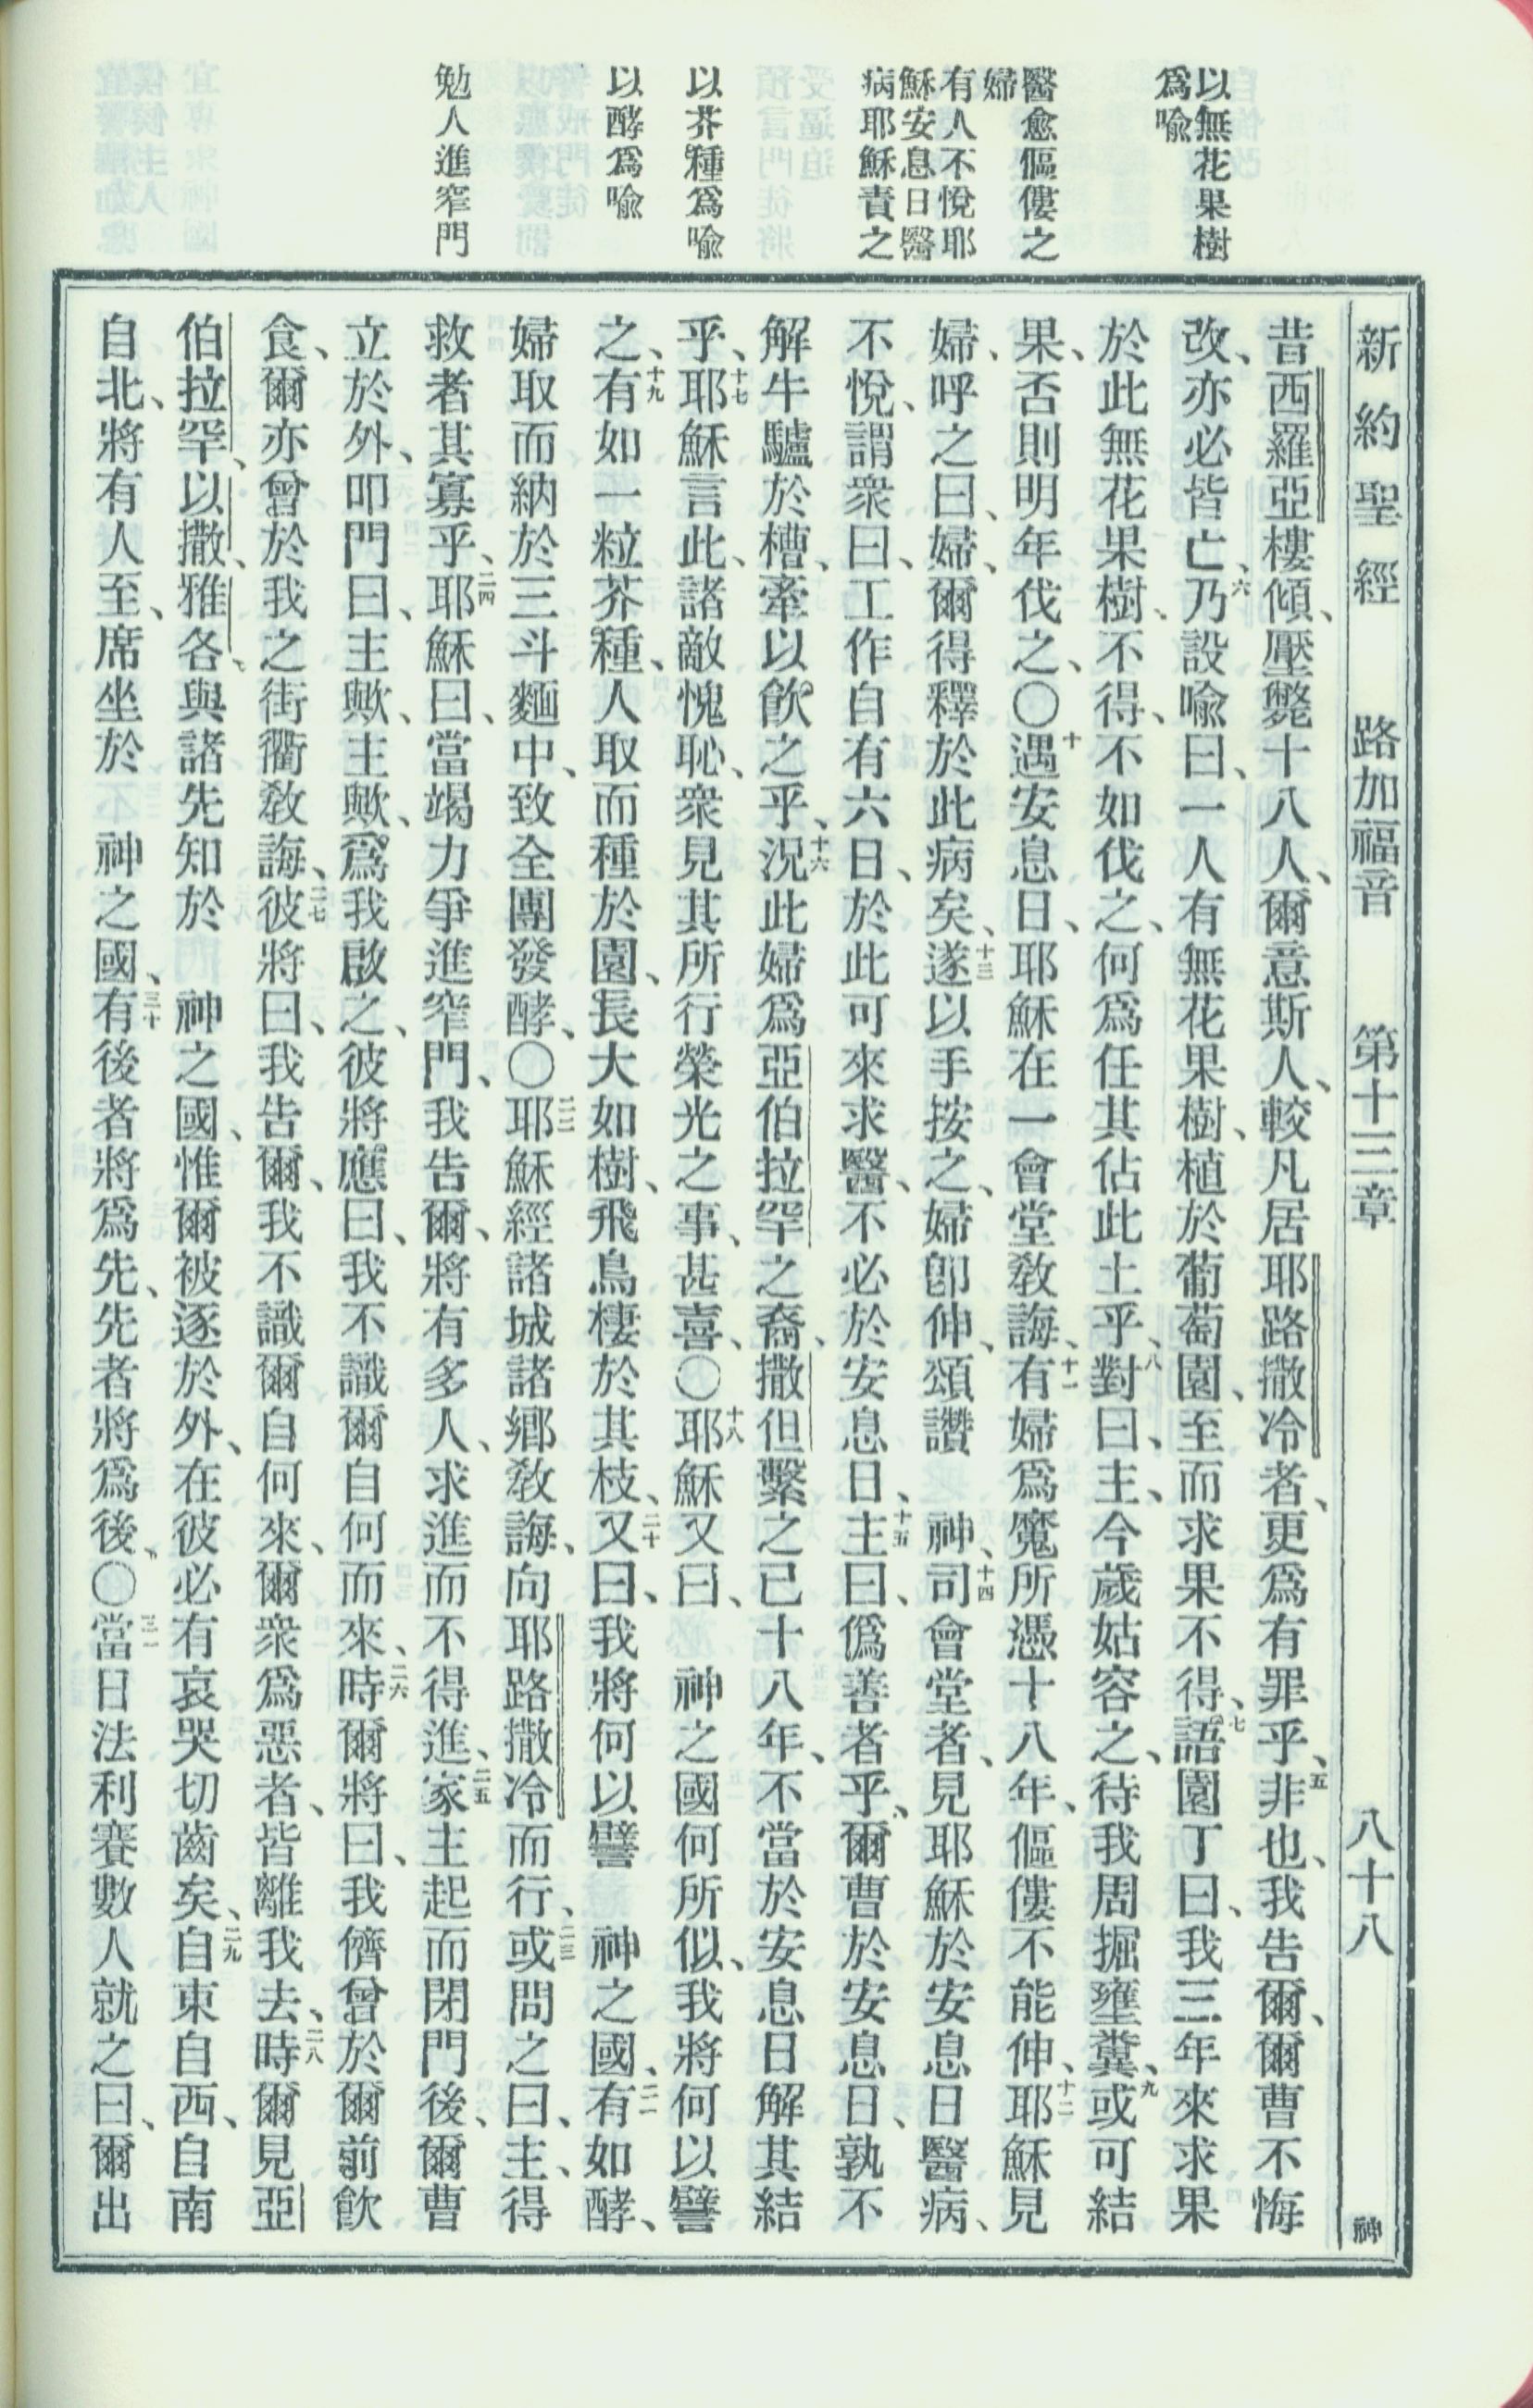 新約聖經 路加福音 第十三章 八十八 神
以無花果樹
爲喩
醫愈傴僂之
婦
有人不悅耶
穌安息日醫
病耶穌責之
以芥種爲喩
以酵爲喩
勉人進窄門
昔西羅亞樓傾、壓斃十八人、爾意斯人、較凡居耶路撒冷者、更爲有罪乎、五非也、我告爾、爾曹不悔
改、亦必皆亡、六乃設喩曰、一人有無花果樹、植於葡萄園、至而求果不得、七語園丁曰、我三年來求果
於此無花果樹、不得、不如伐之、何爲任其佔此土乎、八對曰、主、今歲姑容之、待我周掘壅糞、九或可結
果、否則明年伐之、〇十遇安息日、耶穌在一會堂敎誨、十一有婦爲魔所憑十八年、傴僂不能伸、十二耶穌見
婦、呼之曰、婦、爾得釋於此病矣、十三遂以手按之、婦卽伸、頌讚 神、十四司會堂者、見耶穌於安息日醫病、
不悅、謂衆曰、工作自有六日、於此可來求醫、不必於安息日、十五主曰、僞善者乎、爾曹於安息日、孰不
解牛驢於槽、牽以飮之乎、十六況此婦爲亞伯拉罕之裔、撒但繫之已十八年、不當於安息日解其結
乎、十七耶穌言此、諸敵愧恥、衆見其所行榮光之事、甚喜、〇十八耶穌又曰、 神之國何所似、我將何以譬
之、十九有如一粒芥種、人取而種於園、長大如樹、飛鳥棲於其枝、二十又曰、我將何以譬 神之國、二一有如酵、
婦取而納於三斗麵中、致全團發酵、〇二二耶穌經諸城諸鄉敎誨、向耶路撒冷而行、二三或問之曰、主、得
救者其寡乎、二四耶穌曰、當竭力爭進窄門、我告爾、將有多人、求進而不得進、二五家主起而閉門後、爾曹
立於外、叩門曰、主歟、主歟、爲我啟之、彼將應曰、我不識爾自何而來、二六時爾將曰、我儕曾於爾前飮
食、爾亦曾於我之街衢敎誨、二七彼將曰、我告爾、我不識爾自何來、爾衆爲惡者、皆離我去、二八時爾見亞
伯拉罕、以撒、雅各、與諸先知於 神之國、惟爾被逐於外、在彼必有哀哭切齒矣、二九自東自西、自南
自北、將有人至、席坐於 神之國、三十有後者將爲先、先者將爲後、〇三一當日法利賽數人就之曰、爾出